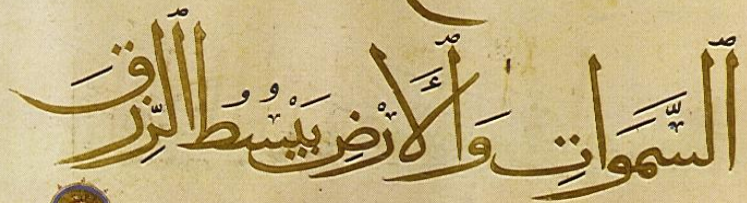 ٱلسَّمَوَاتِ وَٱلْأَرْضِ يَبْسُطُ ٱلرِّزْقَ